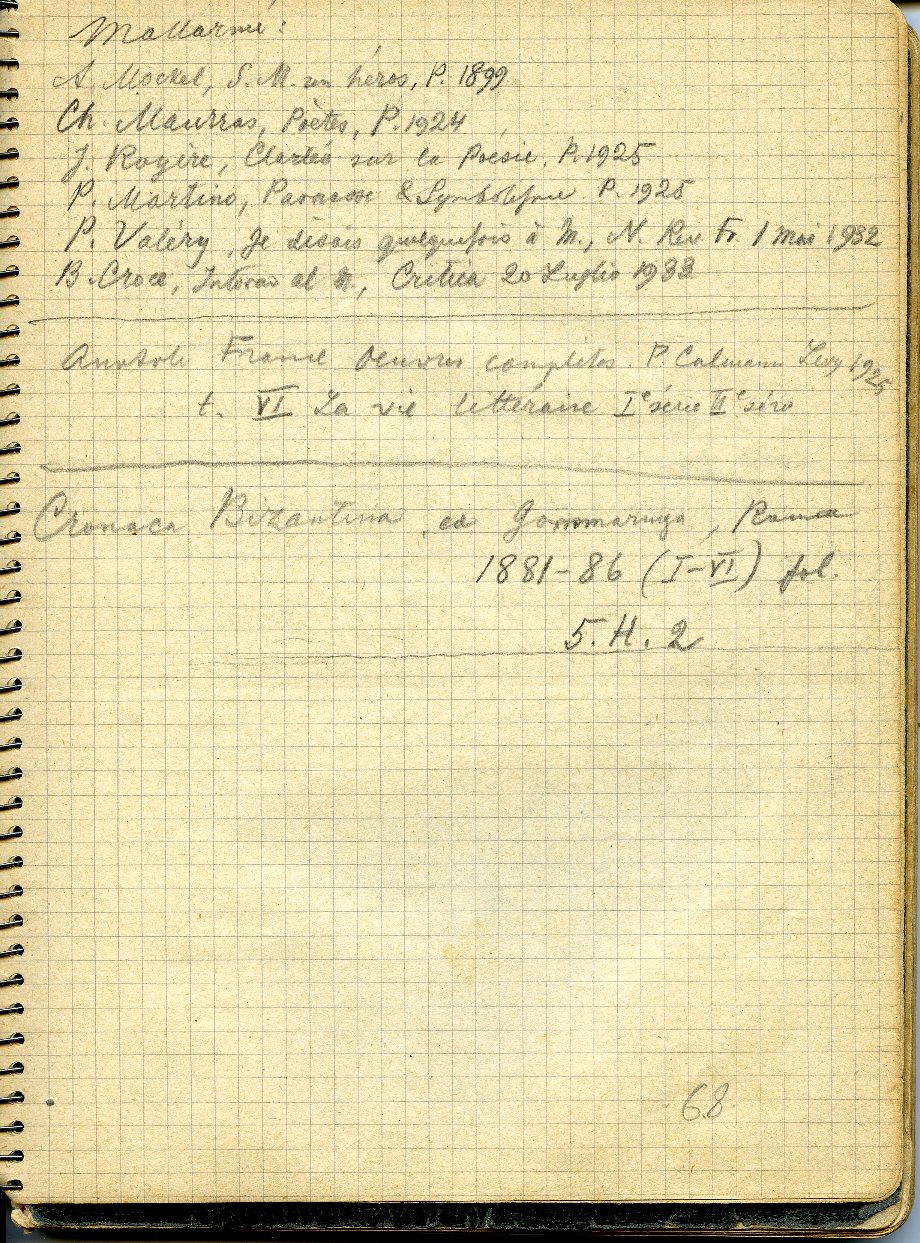 Mallarmé:
A. Mockel, S. M. un héros, P. 1899
Ch. Maurras, Poètes, P. 1924
J. Royère, Clartés sur la Poésie, P. 1925
P. Martino, Parnasse & Symbolisme P. 1925
P. Valéry, Je disais quelquefois à M., N. Rev Fr. 1 Mai 1932
B. Croce, Intorno al M., Critica 20 Luglio 1933
Anatole France Oeuvres complètes. P. Calmann Levy 1925
t. VI La vie littéraire Ie série IIe série
Cronaca Bizantina, ed Sommaruga, Roma
1881-86 (I-VI) fol.
5. H. 2
68